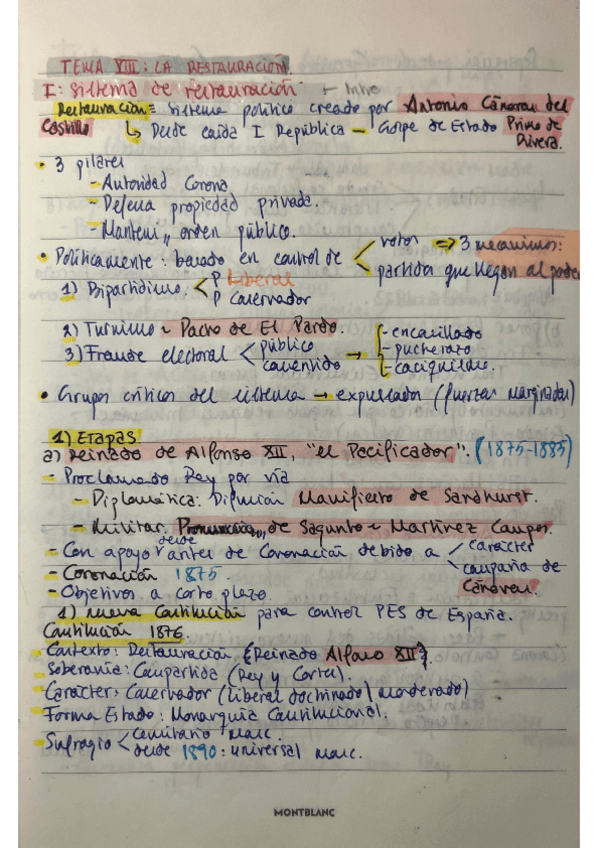 TEMA XIII: LA RESTAURACIÓN.
I: Sistema de restauración + Intro
Restauración = sistema político creado por Antonio Cánovas del
Castillo ↳ Desde caída I República — Golpe de Estado Primo de
Rivera.
• 3 pilares
- Autoridad Corona
- Defensa propiedad privada.
- Manteni, orden público.
• Políticamente: basado en control de < votos ⇒ 3 mecanismos:
partidos que llegan al poder
1) Bipartidismo. < P Liberal
P Conservador
2) Turnismo ~ Pacto de El Pardo.
3) Fraude electoral < público → - encasillado
consentido - pucherazo
- caciquismo.
• Grupos críticos del sistema → expulsados (fuerzas marginadas)
1) Etapas
a) Reinado de Alfonso XII, "el Pacificador". (1875-1885)
- Proclamado Rey por vía
- Diplomática: Difusión Manifiesto de Sandhurst.
- Militar: de Sagunto ~ Martínez Campos.
- Con apoyo desde antes de Coronación debido a < carácter
campaña de
Cánovas.
- Coronación 1875.
- Objetivos a corto plazo.
1) Nueva Constitución para control PES de España.
Constitución 1876.
- Contexto: Restauración {Reinado Alfonso XII}.
- Soberanía: Compartida (Rey y Cortes).
- Carácter: Conservador (liberal doctrinado/ moderado)
- Forma Estado: Monarquía Constitucional.
- Sufragio < censitario masc.
desde 1890: universal masc.
MONTBLANC